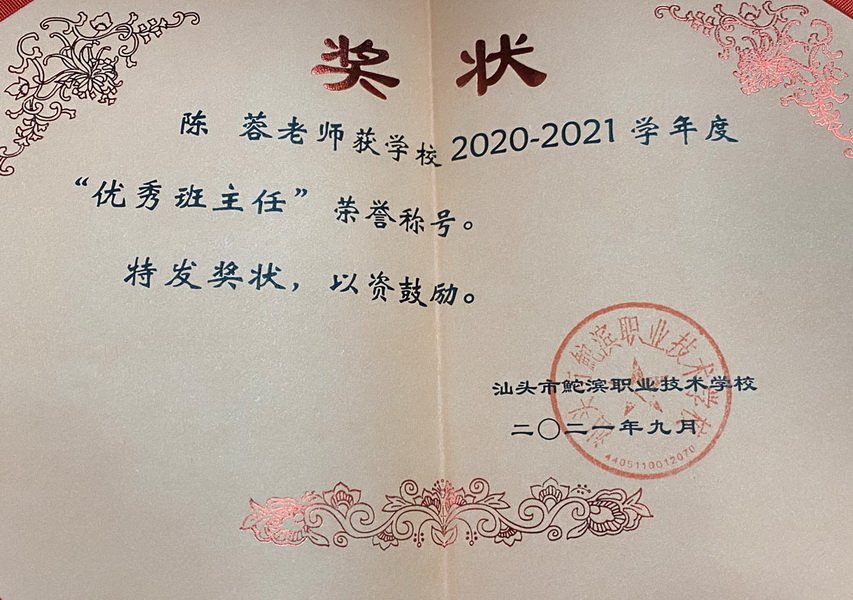 奖状
陈 蓉老师获学校 2020-2021 学年度
“优秀班主任”荣誉称号。
特发奖状，以资鼓励。
汕头市鮀滨职业技术学校
二〇二一年九月
汕头市鮀滨职业技术学校
4405110012070